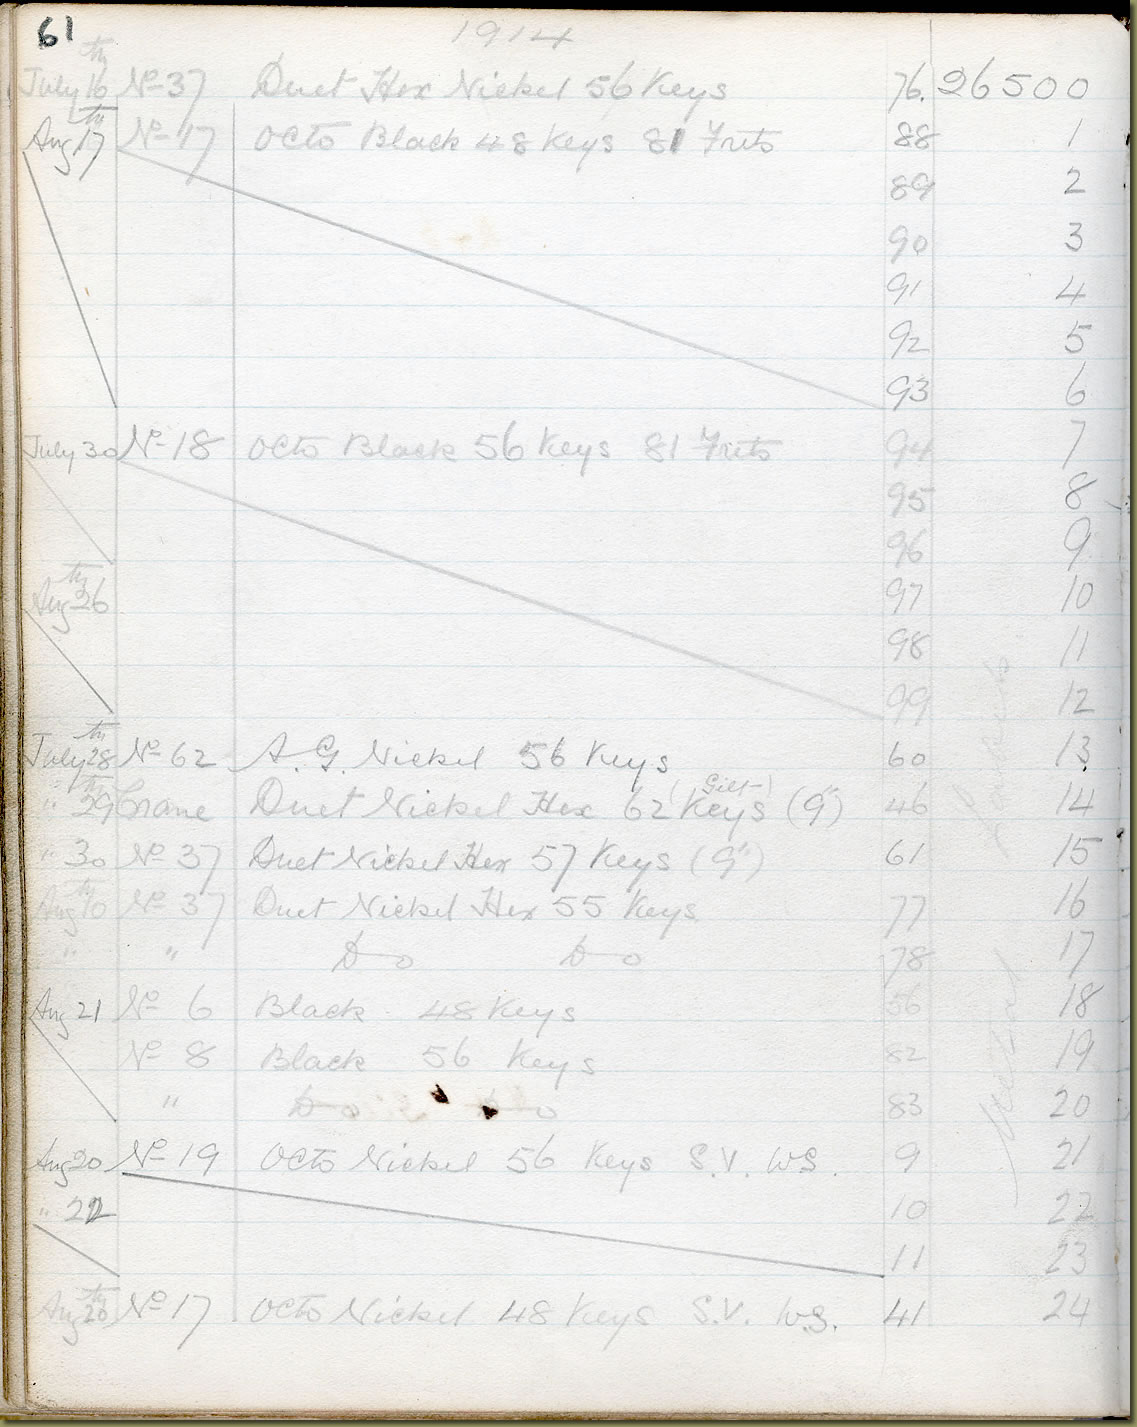 61
1914
July 16th No 37 Duet Hex Nickel 56 Keys 76. 26500
Aug 17th No 17 Octo Black 48 Keys 81 Frets 88 1
89 2
90 3
91 4
92 5
93 6
July 30 No 18 Octo Black 56 Keys 81 Frets 94 7
95 8
96 9
Aug 26th 97 10
98 11
99 12
July 28th No 62 A.G. Nickel 56 Keys 60 13
" 29th Crane Duet Nickel Hex 62 Keys (Gilt) (9") 46 14
" 30 No 37 Duet Nickel Hex 57 Keys (9") 61 15
Aug 10th No 37 Duet Nickel Hex 55 Keys 77 16
" " Do Do 78 17
Aug 21 No 6 Black 48 Keys 56 18
No 8 Black 56 Keys 82 19
" Do Do 83 20
Aug 20 No 19 Octo Nickel 56 Keys S.V. WS. 9 21
" 22 10 22
11 23
Aug 20th No 17 Octo Nickel 48 Keys S.V. W.S. 41 24